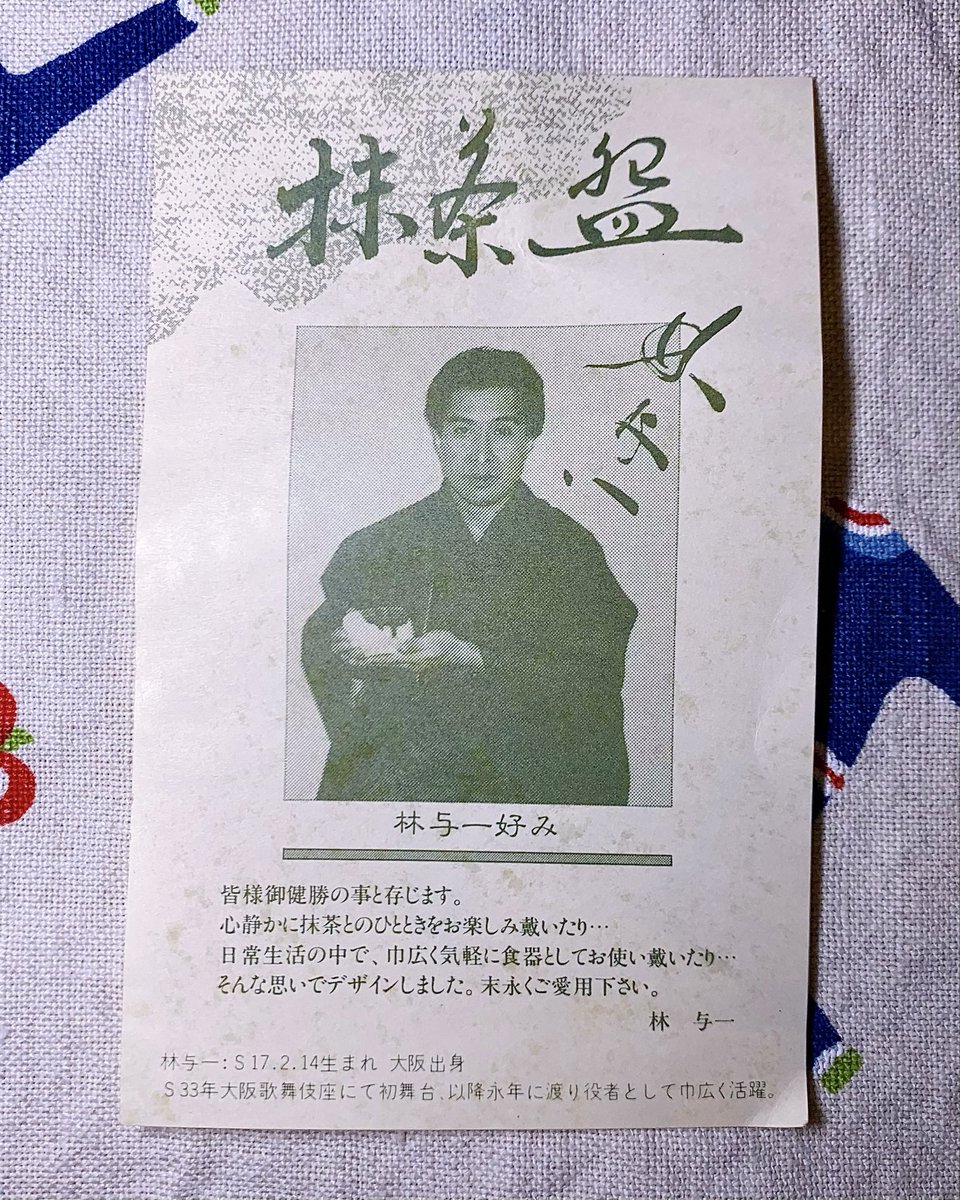 抹茶盌
林与一好み
皆様御健勝の事と存じます。
心静かに抹茶とのひとときをお楽しみ戴いたり…
日常生活の中で、巾広く気軽に食器としてお使い戴いたり…
そんな思いでデザインしました。末永くご愛用下さい。
林 与一
林与一：S17.2.14生まれ 大阪出身
S33年大阪歌舞伎座にて初舞台、以降永年に渡り役者として巾広く活躍。